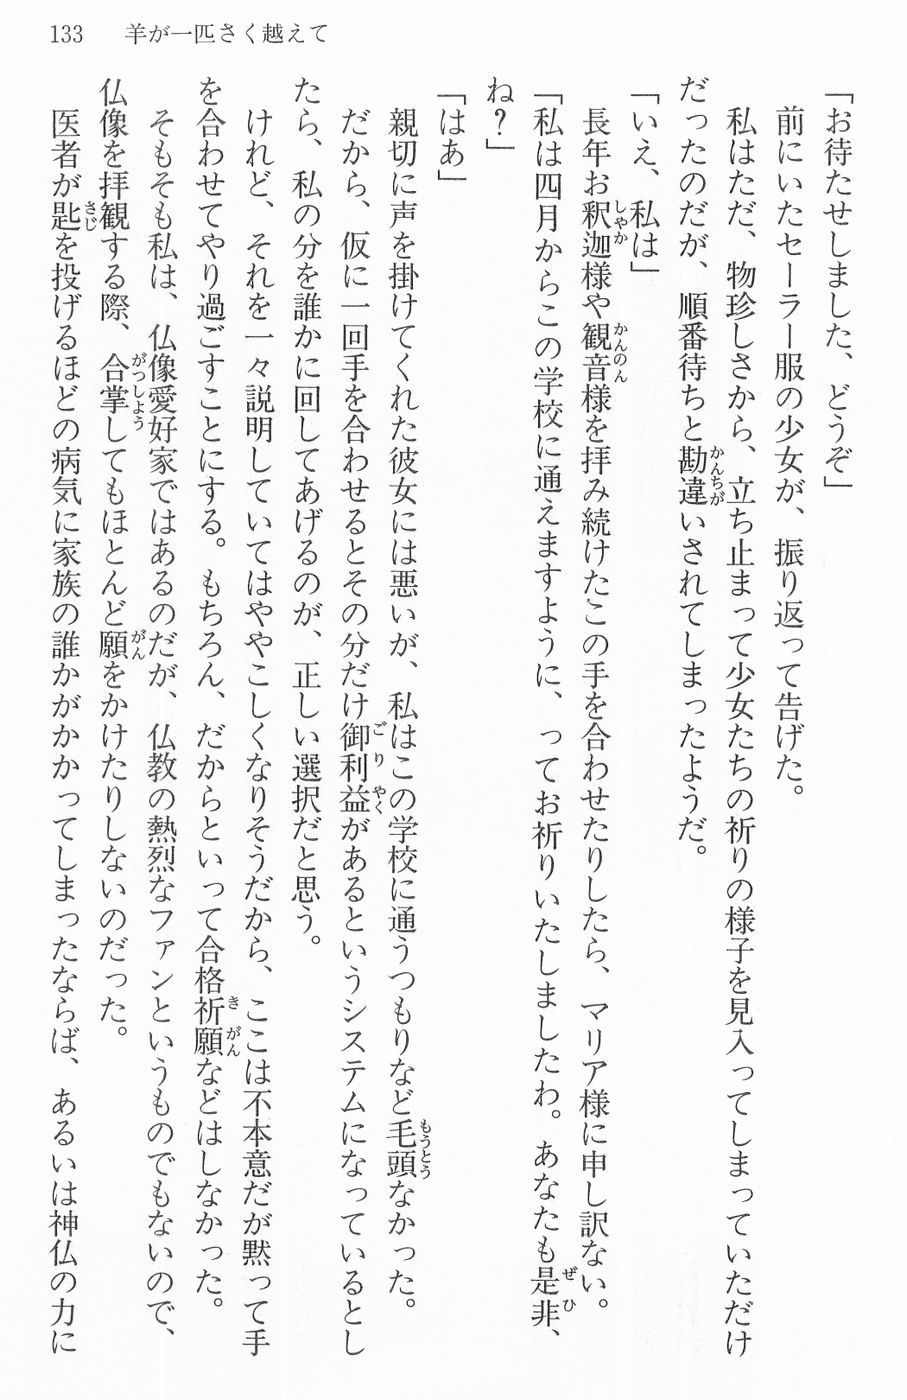 133　羊が一匹さく越えて
「お待たせしました、どうぞ」
前にいたセーラー服の少女が、振り返って告げた。
私はただ、物珍しさから、立ち止まって少女たちの祈りの様子を見入ってしまっていただけ
だったのだが、順番待ちと勘違いされてしまったようだ。
「いえ、私は」
長年お釈迦様や観音様を拝み続けたこの手を合わせたりしたら、マリア様に申し訳ない。
「私は四月からこの学校に通えますように、ってお祈りいたしましたわ。あなたも是非、
ね？」
「はあ」
親切に声を掛けてくれた彼女には悪いが、私はこの学校に通うつもりなど毛頭なかった。
だから、仮に一回手を合わせるとその分だけ御利益があるというシステムになっているとし
たら、私の分を誰かに回してあげるのが、正しい選択だと思う。
けれど、それを一々説明していてはややこしくなりそうだから、ここは不本意だが黙って手
を合わせてやり過ごすことにする。もちろん、だからといって合格祈願などはしなかった。
そもそも私は、仏像愛好家ではあるのだが、仏教の熱烈なファンというものでもないので、
仏像を拝観する際、合掌してもほとんど願をかけたりしないのだった。
医者が匙を投げるほどの病気に家族の誰かがかかってしまったならば、あるいは神仏の力に